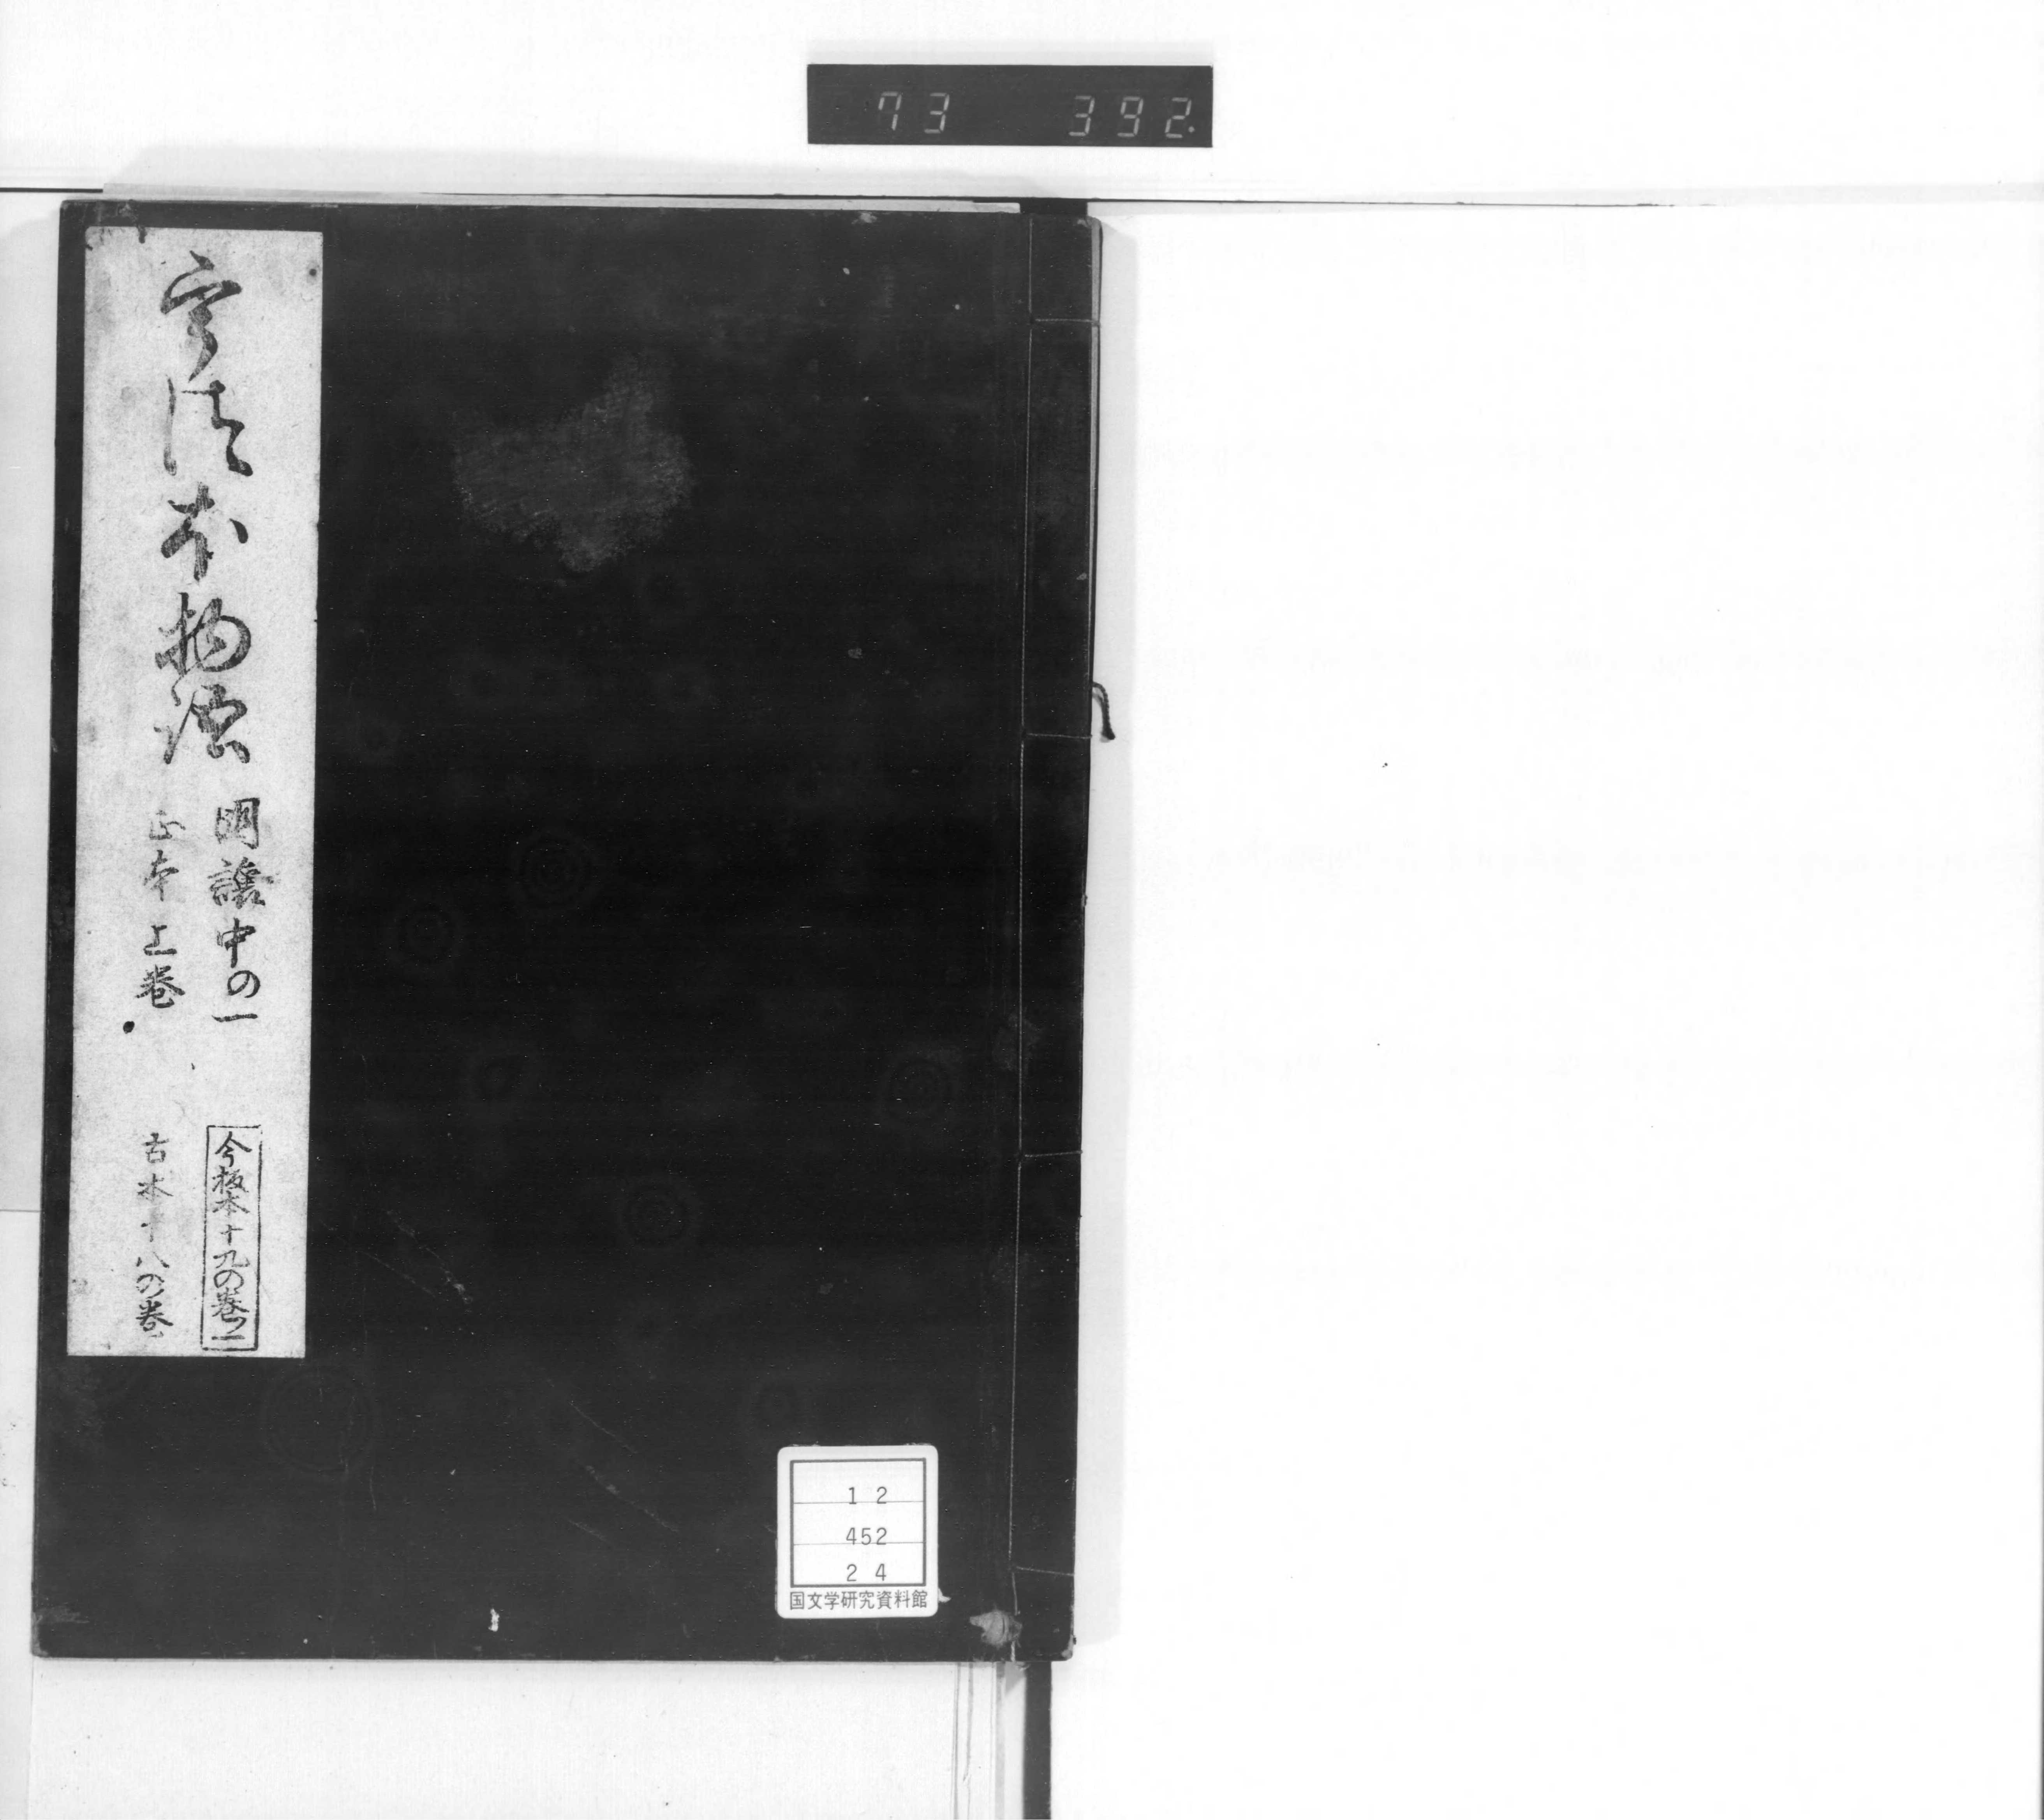 73 392.
宇津本物語
国譲中の一
正本上巻
今板本十九の巻ノ一
古本十八の巻
12
452
24
国文学研究資料館